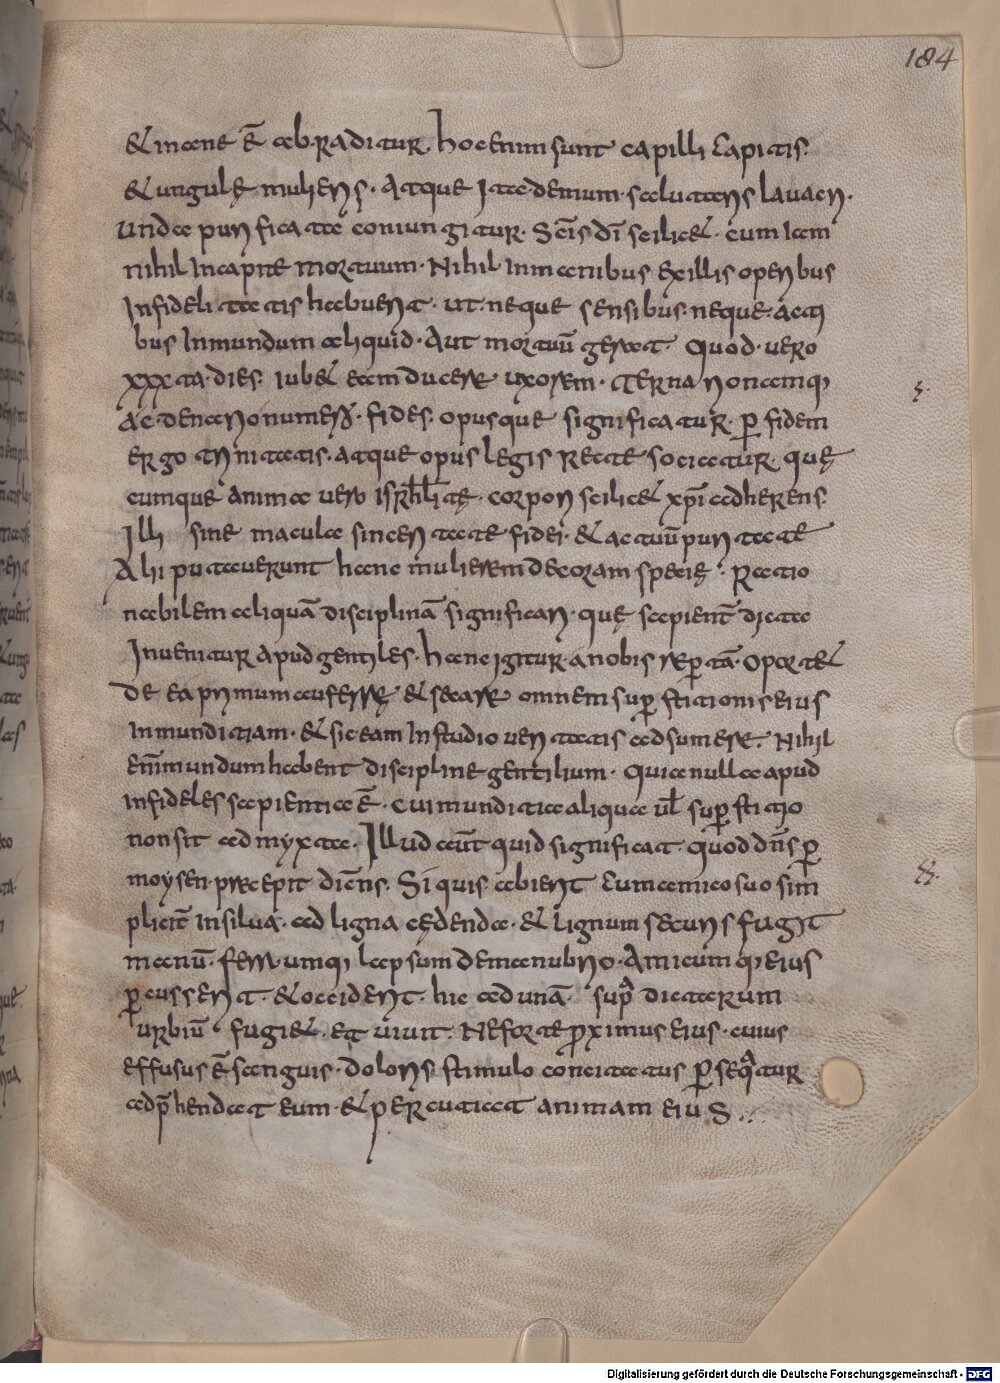 184
& inane ē abraditur. hoc enim sunt capilli capitis.
& ungulę mulieris. Atque ita demum salutaris lavacri.
unda purificata coniungitur. Scīs dī scilic&. cum iam
nihil in capite mortuum. Nihil in manibus ex illis operibus
infidelitatis habuerit. ut neque sensibus neque acti
bus inmundum aliquid. Aut mortuū gerat. Quod vero
xxxta dies iub& eam ducere uxorem. Terna non amq;
ac denario numero. fides. opusque significatur. p fidem
ergo trinitatis. atque opus legis recte sociatur quę
cumque animae vero isrhlitę. corpori scilic& xpī adherens.
Illi sine macula sinceritate fidei. & actuū puritate
Alii putaverunt hanc mulierem decoram specię. Ratio
nabilem aliquā disciplinā significari. quę sapient dicta
Invenitur apud gentiles. hanc igitur a nobis repertā. oport&
de ea primum auferre & secare omnem supstitionis eius
inmunditiam. & sic eam in studio veritatis adsumere. Nihil
enī mundum habent discipline gentilium. Quia nulla apud
infideles sapientia ē. cui munditia aliqua ul supstitio
non sit admyxta. Illud aut quid significat. quod dns p
moysen precepit dicens. Si quis abierit cum amico suo sim
plicit in silva. ad ligna cędenda. & lignum securis fugit
manū. ferrumq; lapsum de manubrio. Amicum q; eius
pcusserit. & occiderit. hic ad unā. supra dictarum
urbiū fugi&. et vivit. Ne forte pximus eius. cuius
effusus ē sanguis. doloris stimulo concitatus psequatur
adphendat eum. & percutiat animam eius..
Digitalisierung gefördert durch die Deutsche Forschungsgemeinschaft - DFG